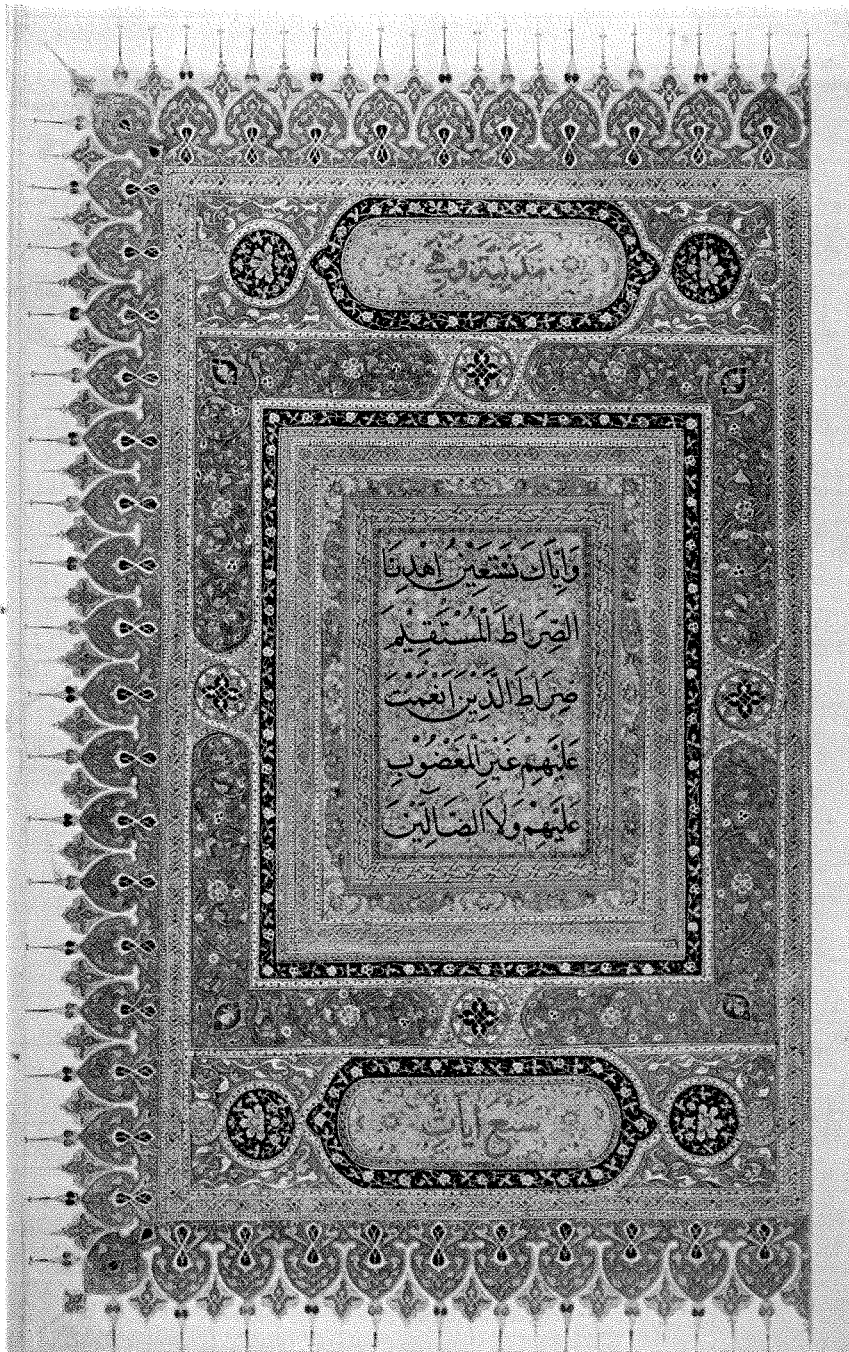 مَدَنِيَّةٌ وَهِيَ
وَاِيَّاكَ نَسْتَعِيْنُ اِهْدِنَا
الصِّرَاطَ الْمُسْتَقِيْمَ
صِرَاطَ الَّذِيْنَ اَنْعَمْتَ
عَلَيْهِمْ غَيْرِ الْمَغْضُوْبِ
عَلَيْهِمْ وَلَا الضَّٓالِّيْنَ
سَبْعُ اٰيَاتٍ